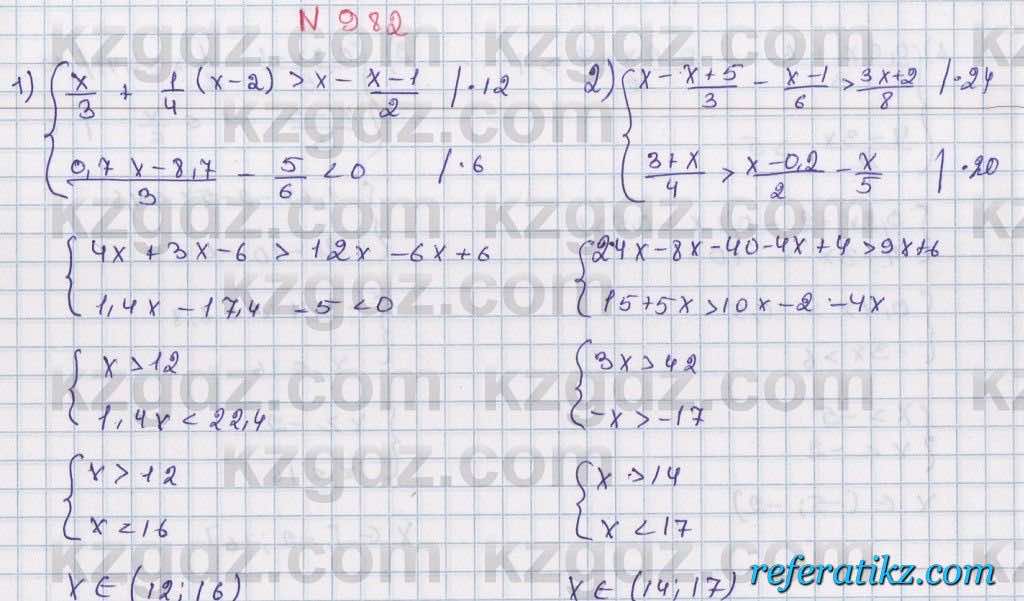 N 982
1) { x/3 + 1/4 (x-2) > x - x-1/2 | ·12
0,7x-8,7/3 - 5/6 < 0 | ·6
{ 4x+3x-6 > 12x-6x+6
1,4x-17,4-5<0
{ x>12
1,4x<22,4
{ x>12
x<16
x∈(12;16)
2) { x - x+5/3 - x-1/6 > 3x+2/8 | ·24
3+x/4 > x-0,2/2 - x/5 | ·20
{ 24x-8x-40-4x+4>9x+6
15+5x>10x-2-4x
{ 3x>42
-x>-17
{ x>14
x<17
x∈(14;17)
referatikz.com
kzgdz.com